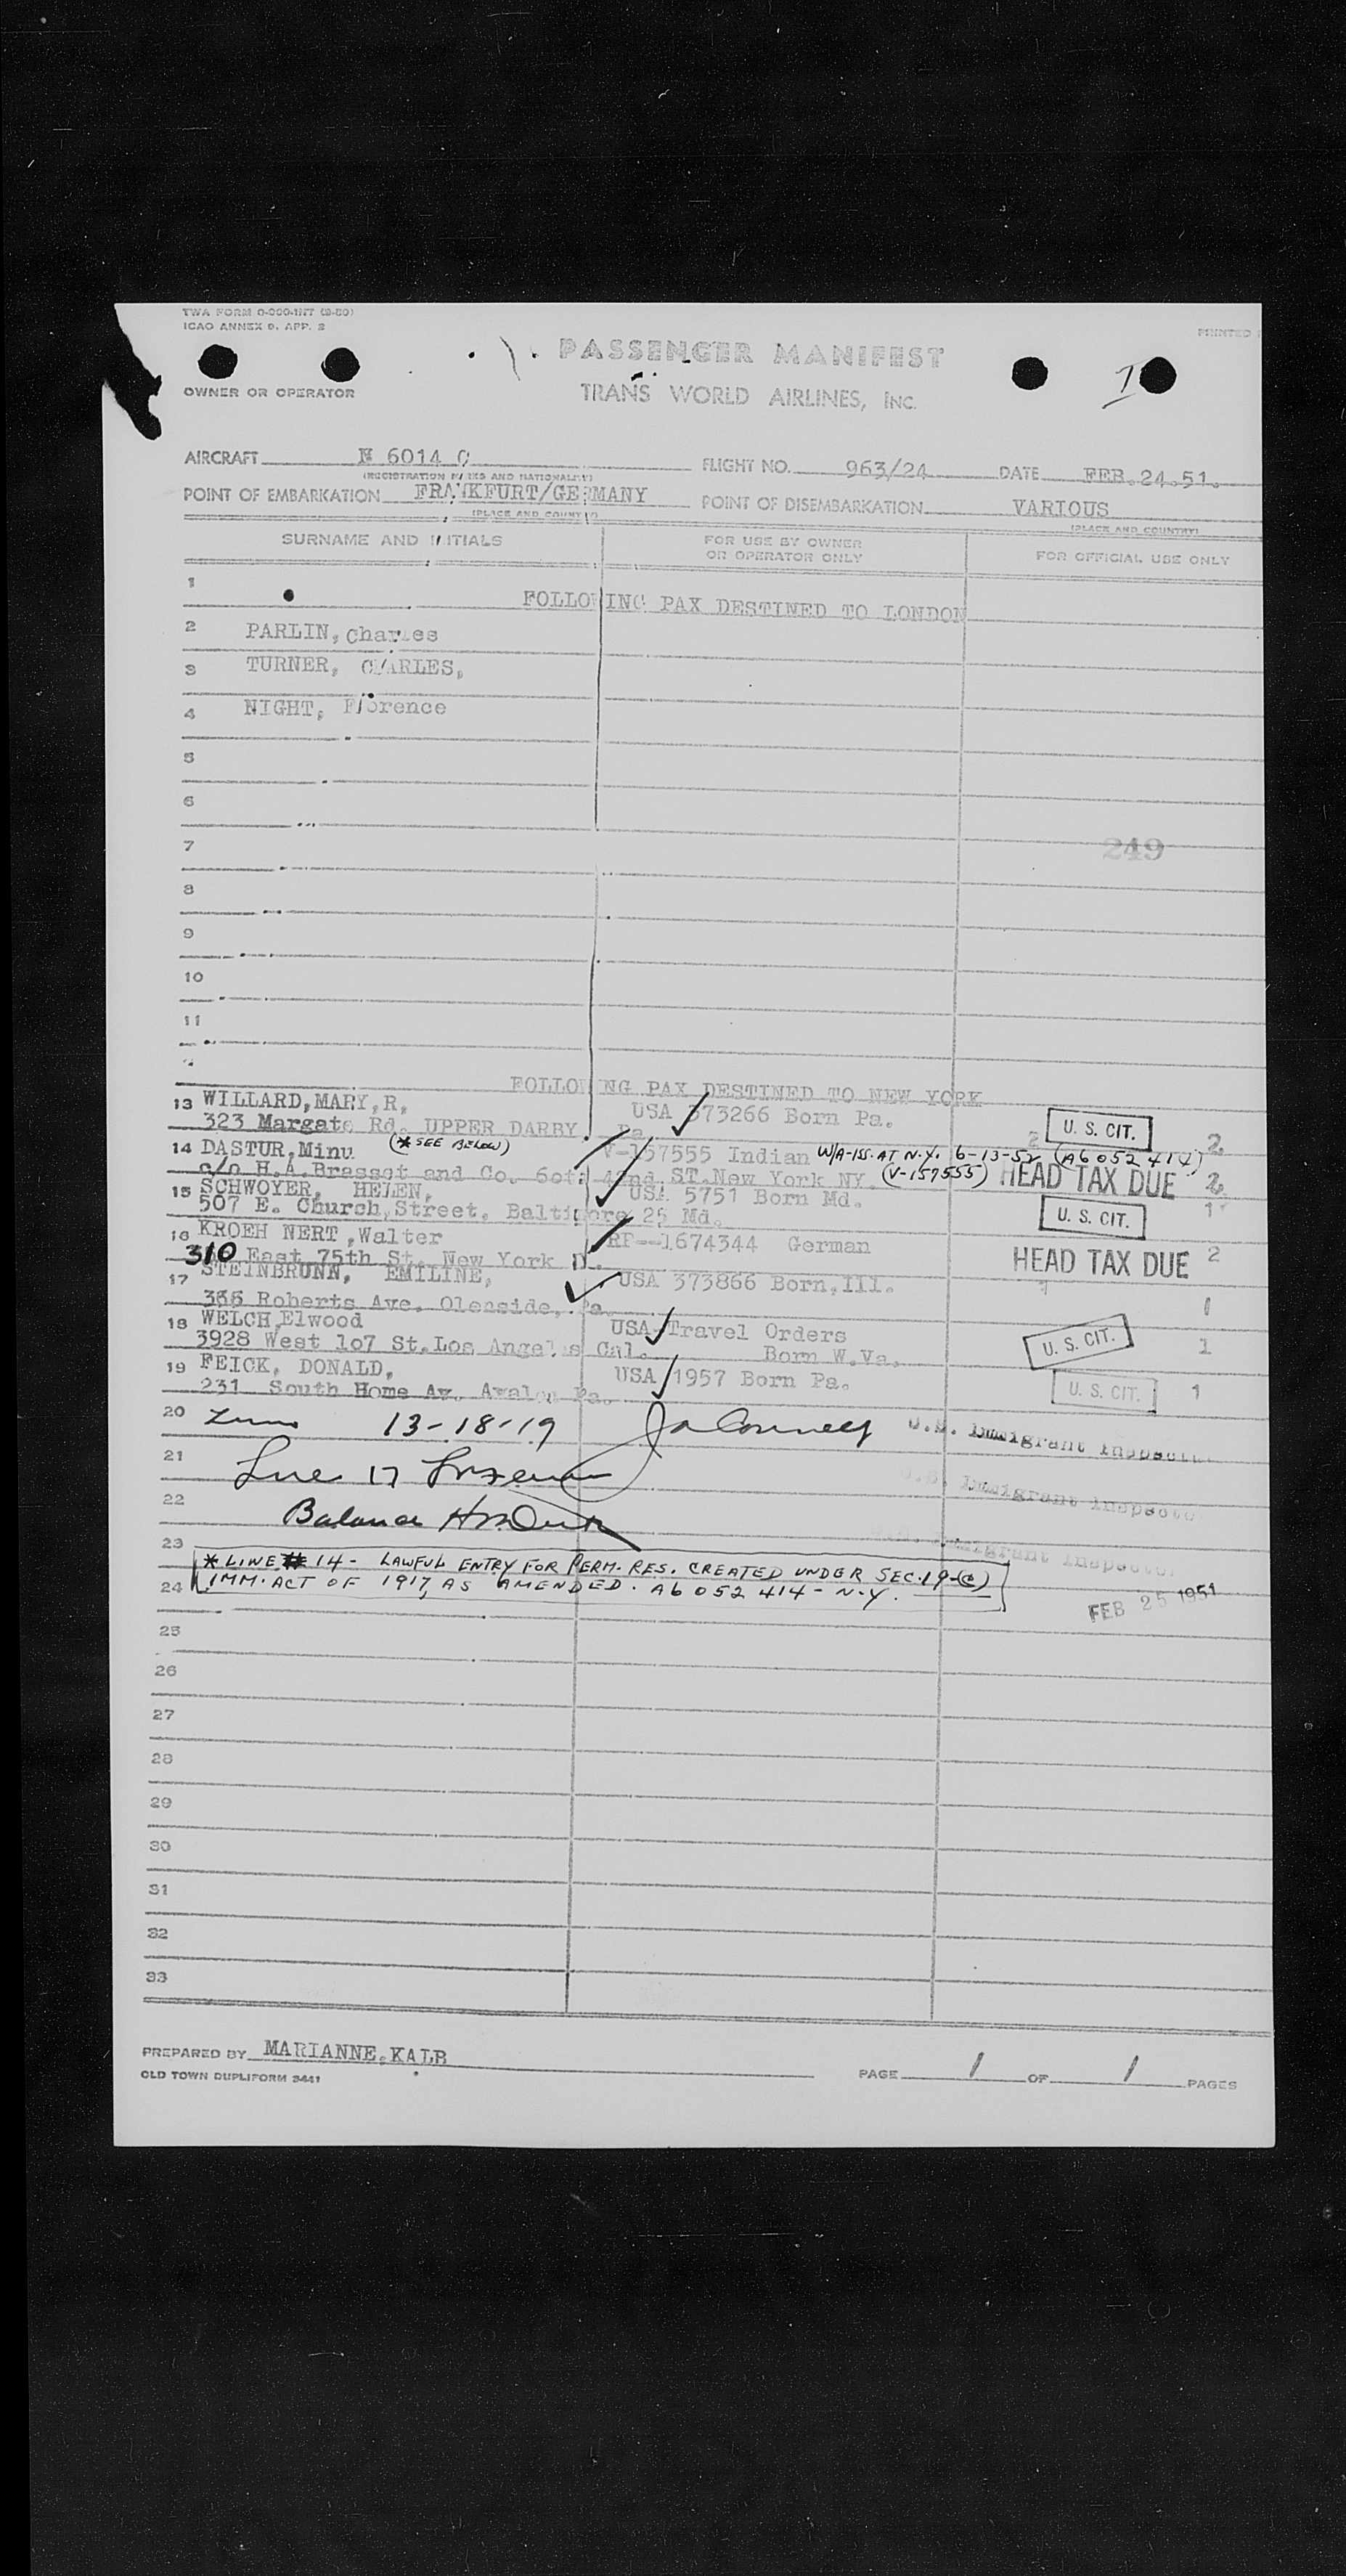 TWA FORM 0-000-INT (9-50)
ICAO ANNEX 9, APP. 2
PRINTED
PASSENGER MANIFEST
1
OWNER OR OPERATOR
TRANS WORLD AIRLINES, INC.
AIRCRAFT N 6014 C FLIGHT NO. 963/24 DATE FEB.24.51.
(REGISTRATION MARKS AND NATIONALITY)
POINT OF EMBARKATION FRANKFURT/GERMANY POINT OF DISEMBARKATION VARIOUS
(PLACE AND COUNTRY) (PLACE AND COUNTRY)
SURNAME AND INITIALS FOR USE BY OWNER OR OPERATOR ONLY FOR OFFICIAL USE ONLY
1 FOLLOWING PAX DESTINED TO LONDON
2 PARLIN, Charles
3 TURNER, CHARLES,
4 NIGHT, Florence
5
6
7 249
8
9
10
11
FOLLOWING PAX DESTINED TO NEW YORK
13 WILLARD,MARY,R, USA 373266 Born Pa. U. S. CIT. 2
323 Margate Rd. UPPER DARBY. Pa.
14 DASTUR,Minu (* SEE BELOW) V-157555 Indian W/A-ISS. AT N.Y. 6-13-52 (A6 052 414)
c/o H.A.Brassot and Co. 6o 42nd ST.New York NY. (V-157555) HEAD TAX DUE 2
15 SCHWOYER, HELEN, USA 5751 Born Md. 1
507 E. Church,Street, Baltimore 25 Md. U. S. CIT.
16 KROEH NERT ,Walter RP--1674344 German HEAD TAX DUE 2
310 East 75th St. New York N.
17 STEINBRUNN, EMILINE, USA 373866 Born,Ill. 1
366 Roberts Ave. Olenside, Pa.
18 WELCH,Elwood USA Travel Orders U. S. CIT. 1
3928 West 1o7 St.Los Angeles Cal. Born W.Va.
19 FEICK, DONALD, USA 1957 Born Pa. U. S. CIT. 1
231 South Home Av. Avalon Pa.
20 13-18-19 U.S. Immigrant Inspector
21 Line 17 U.S. Immigrant Inspector
22 Balance
23 U.S. Immigrant Inspector
* LINE # 14 - LAWFUL ENTRY FOR PERM. RES. CREATED UNDER SEC. 19-(c)
24 IMM. ACT OF 1917, AS AMENDED. A6 052 414 - N.Y.
FEB 25 1951
25
26
27
28
29
30
31
32
33
PREPARED BY MARIANNE.KALB
OLD TOWN DUPLIFORM 3441
PAGE 1 OF 1 PAGES